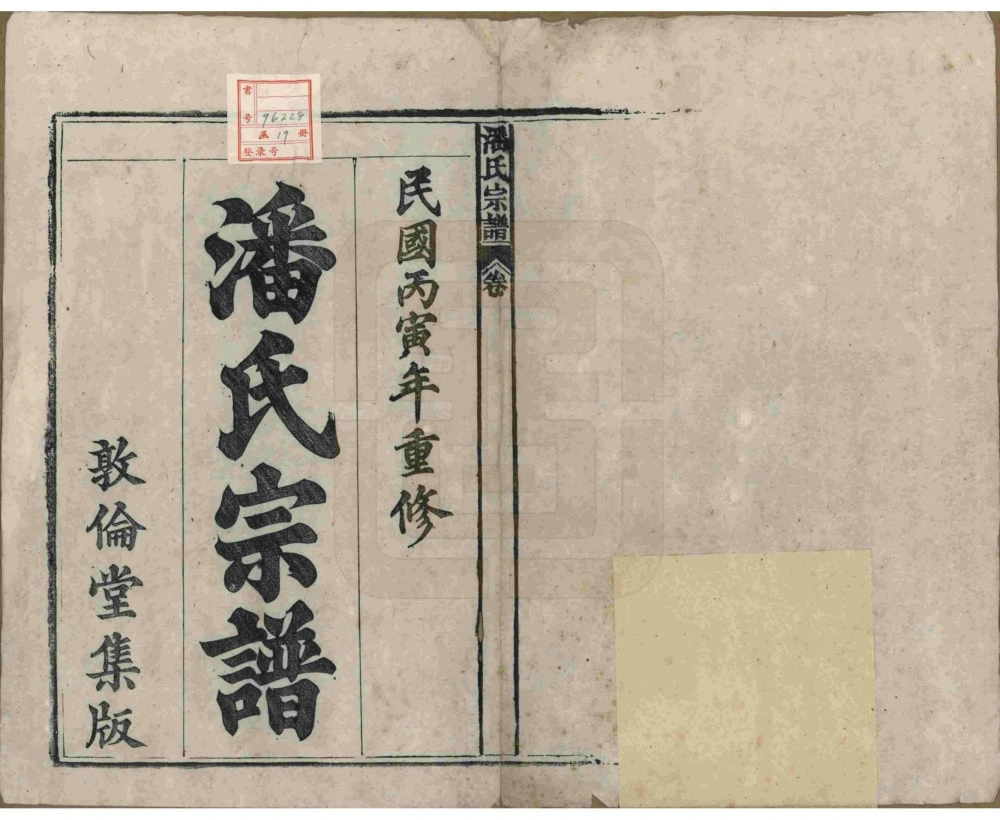 潘氏宗譜
卷
民國丙寅年重修
潘氏宗譜
敦倫堂集版
書号 96228
函 19 册
登录号